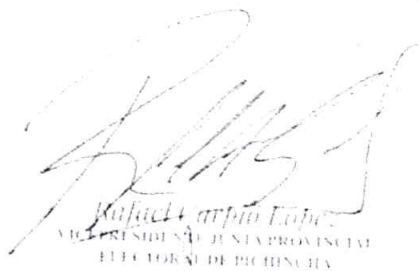 Rafael Carpio López
VICEPRESIDENTE JUNTA PROVINCIAL
ELECTORAL DE PICHINCHA